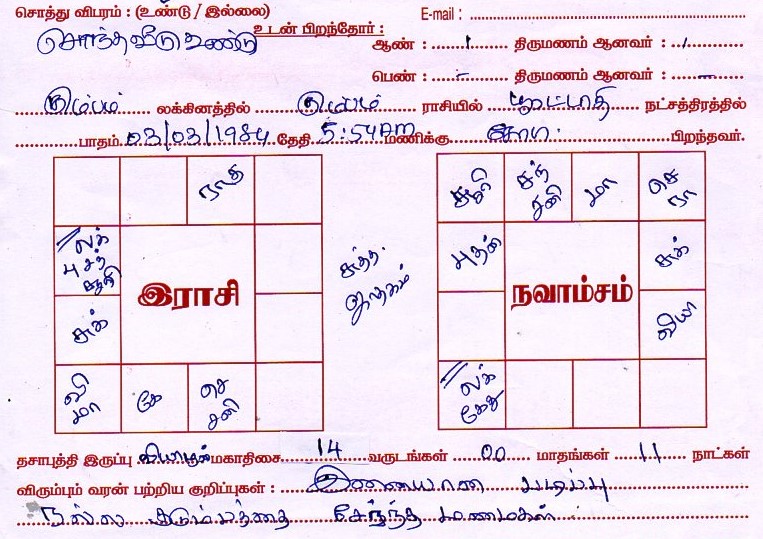 சொத்து விபரம் : (உண்டு / இல்லை) E-mail : 
சொந்தவீடு உண்டு உடன் பிறந்தோர் : ஆண் : 1 திருமணம் ஆனவர் : 1
பெண் : - திருமணம் ஆனவர் : -
கும்பம் லக்கினத்தில் கும்பம் ராசியில் பூரட்டாதி நட்சத்திரத்தில்
பாதம் 03/03/1984 தேதி 5:54 AM மணிக்கு பிறந்தவர்.
ராகு
லக்
பு சந்
சூரி
இராசி
சுக்
வி
மா
கே
செ
சனி
சுத்த
ஜாதகம்
சூரி
சந்
சனி
மா
செ
ரா
புதன்
நவாம்சம்
சுக்
வியா
லக்
கேது
தசாபுத்தி இருப்பு வியாழன் மகாதிசை 14 வருடங்கள் 00 மாதங்கள் 11 நாட்கள்
விரும்பும் வரன் பற்றிய குறிப்புகள் : இணையான படிப்பு
நல்ல குடும்பத்தை சேர்ந்த மணமகள்